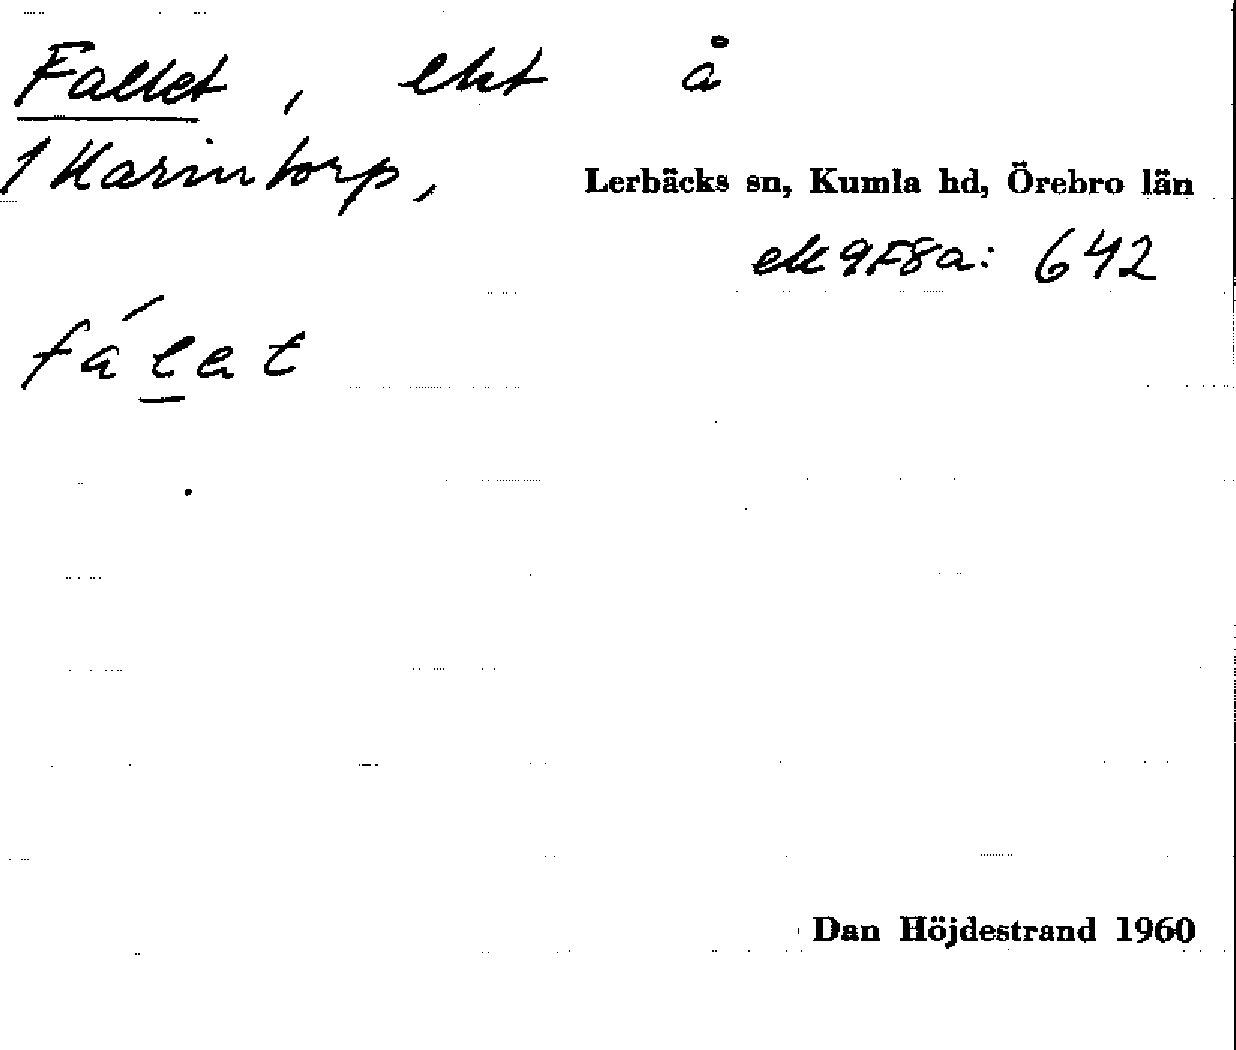 Fallet, lht å
1 Karintorp,
Lerbäcks sn, Kumla hd, Örebro län
ek 9F8a: 642
fálat
Dan Höjdestrand 1960